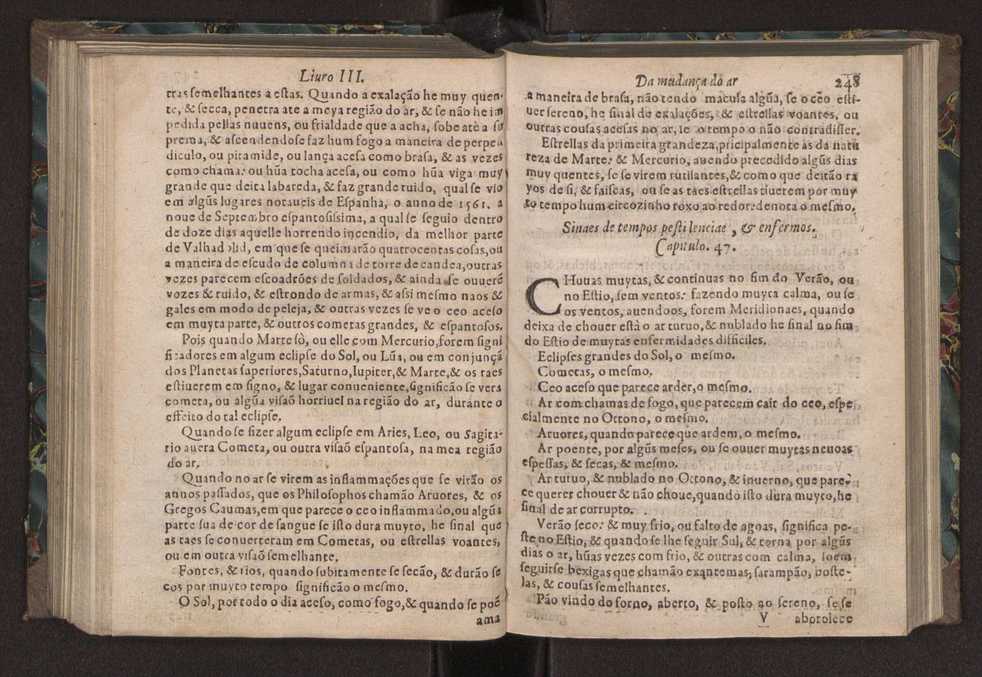 Liuro III.
tras semelhantes a estas. Quando a exalação he muy quen-
te, & secca, penetra ate a meya região do ar, & se não he im
pedida pellas nuuens, ou frialdade que a acha, sobe atè a su
prema, & ascendendose faz hum fogo a maneira de perpen
diculo, ou piramide, ou lança acesa como brasa, & as vezes
como chama: ou hũa tocha acesa, ou como hũa viga muy
grande que deita labareda, & faz grande ruido, qual se vio
em algũs lugares notaueis de Espanha, o anno de 1561. a
noue de Septembro espantosissima, a qual se seguio dentro
de doze dias aquelle horrendo incendio, da melhor parte
de Valhadolid, em que se queimarão quatrocentas cosas, ou
a maneira de escudo de columna de torre de candea, outras
vezes parecem escoadrões de soldados, & ainda se ouuerẽ
vozes & ruido, & estrondo de armas, & assi mesmo naos &
gales em modo de peleja, & outras vezes se ve o ceo aceso
em muyta parte, & outros cometas grandes, & espantosos.
Pois quando Marte sò, ou elle com Mercurio, forem signi
ficadores em algum eclipse do Sol, ou Lũa, ou em conjunçã
dos Planetas superiores, Saturno, Iupiter, & Marte, & os taes
estiuerem em signo, & lugar conueniente, significão se vera
cometa, ou algũa visaõ horriuel na região do ar, durante o
effeito do tal eclipse.
Quando se fizer algum eclipse em Aries, Leo, ou Sagita-
rio auera Cometa, ou outra visaõ espantosa, na mea região
do ar.
Quando no ar se virem as inflammações que se virão os
annos passados, que os Philosophos chamão Aruores, & os
Gregos Caumas, em que parece o ceo inflammado, ou algũa
parte sua de cor de sangue se isto dura muyto, he sinal que
as taes se conuerteram em Cometas, ou estrellas voantes,
ou em outra visaõ semelhante.
Fontes, & rios, quando subitamente se secão, & durão se
cos por muyto tempo significão o mesmo.
O Sol, por todo o dia aceso, como fogo, & quando se poẽ
ama
Da mudança do ar 248
a maneira de brasa, não tendo macula algũa, se o ceo esti-
uer sereno, he sinal de exalações, & estrellas voantes, ou
outras cousas acesas no ar, se o tempo o não contradisser.
Estrellas da primeira grandeza, pricipalmente as da natu
reza de Marte: & Mercurio, auendo precedido algũs dias
muy quentes, se se virem rutilantes, & como que deitão ra
yos de si, & faiscas, ou se as taes estrellas tiuerem por muy
to tempo hum circozinho roxo ao redor: denota o mesmo.
Sinaes de tempos pestilenciae, & enfermos.
Capitulo. 47.
CHuuas muytas, & continuas no fim do Verão, ou
no Estio, sem ventos: fazendo muyta calma, ou se
os ventos, auendoos, forem Meridionaes, quando
deixa de chouer està o ar turuo, & nublado he sinal no fim
do Estio de muytas enfermidades difficiles.
Eclipses grandes do Sol, o mesmo.
Cometas, o mesmo.
Ceo aceso que parece arder, o mesmo.
Ar com chamas de fogo, que parecem cair do ceo, espe
cialmente no Ottono, o mesmo.
Aruores, quando parece que ardem, o mesmo.
Ar poente, por algũs meses, ou se ouuer muytas neuoas
espessas, & secas, & mesmo.
Ar turuo, & nublado no Ottono, & inuerno, que pare-
ce querer chouer & não choue, quando isto dura muyto, he
sinal de ar corrupto.
Verão seco: & muy frio, ou falto de agoas, significa pe-
ste no Estio, & quando se lhe seguir Sul, & torna por algũs
dias o ar, hũas vezes com frio, & outras com calma, soem
seguirse bexigas que chamão exantemas, sarampão, boste-
las, & cousas semelhantes.
Pão vindo do forno, aberto, & posto ao sereno, se se
V aborolece